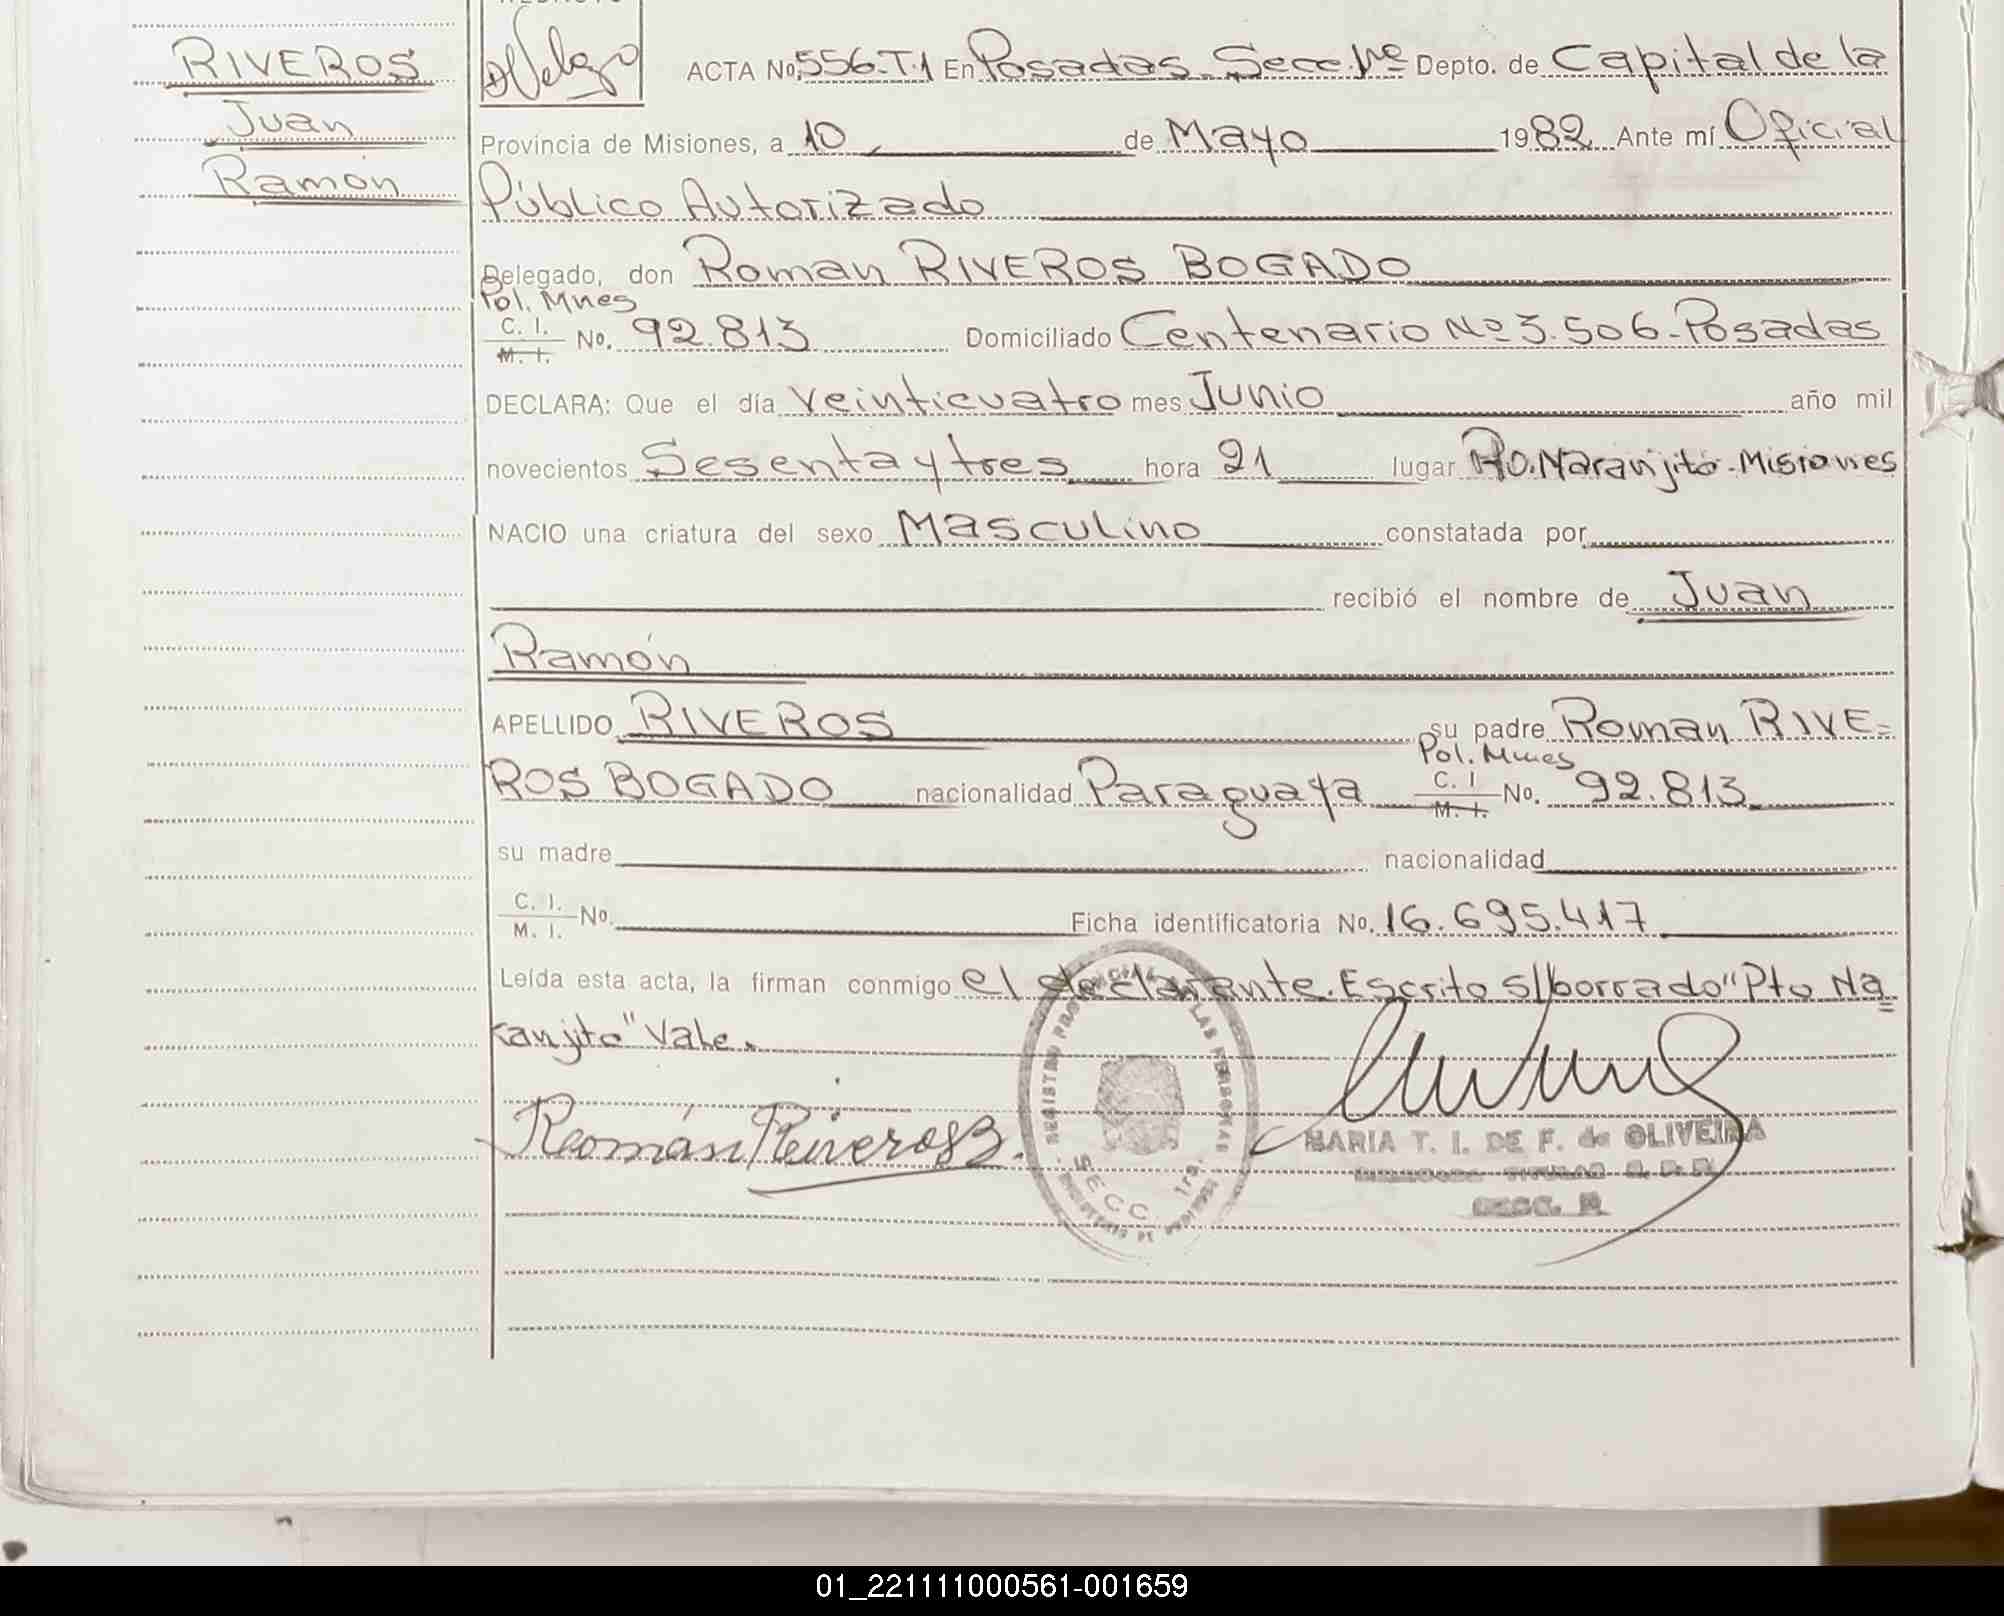 RIVEROS
Juan
Ramón
ACTA No. 556-T.1 En Posadas Secc. 1º Depto. de Capital de la
Provincia de Misiones, a 10 de Mayo 1982 Ante mí Oficial
Público Autorizado
Delegado, don Roman RIVEROS BOGADO
Pol. Mnes
C. I.
M. I. No. 92.813 Domiciliado Centenario Nº 3.506-Posadas
DECLARA: Que el día veinticuatro mes Junio año mil
novecientos Sesenta y tres hora 21 lugar Pto. Naranjito-Misiones
NACIO una criatura del sexo Masculino constatada por
recibió el nombre de Juan
Ramón
APELLIDO RIVEROS su padre Roman RIVE=
Pol. Mnes
ROS BOGADO nacionalidad Paraguaya C. I. M. I. No. 92.813
su madre nacionalidad
C. I.
M. I. No. Ficha identificatoria No. 16.695.417
Leída esta acta, la firman conmigo el declarante. Escrito s/borrado "Pto Na=
ranjito" Vale.
Román Riveros B.
REGISTRO PROVINCIAL DE LAS PERSONAS
SECC. 1ra.
MARIA T. I. DE F. de OLIVEIRA
01_221111000561-001659